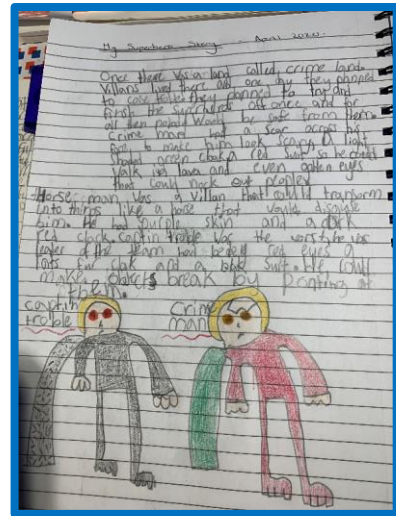 My Superhero Story April 2020.
Once there was a land called, crime land.
Villans lived there and one day they planned
to case trouble they planned to try and
finish the superheros off once and for
all then nobody would be safe from them.
Crime man had a scar across his
face to make him look scary, a light
shaded green cloak, a red suit so he could
walk in lava and even golden eyes
that could nock out people.
Horse man was a villan that could tranform
into things like a horse that would disguise
him. He had purple skin and a dark
red clock. captin troble was the worst, he was
leader of the team had red eyes a
fur clock and a black suit. He could
make objects break by pointing at
them.
captin Crime
troble man